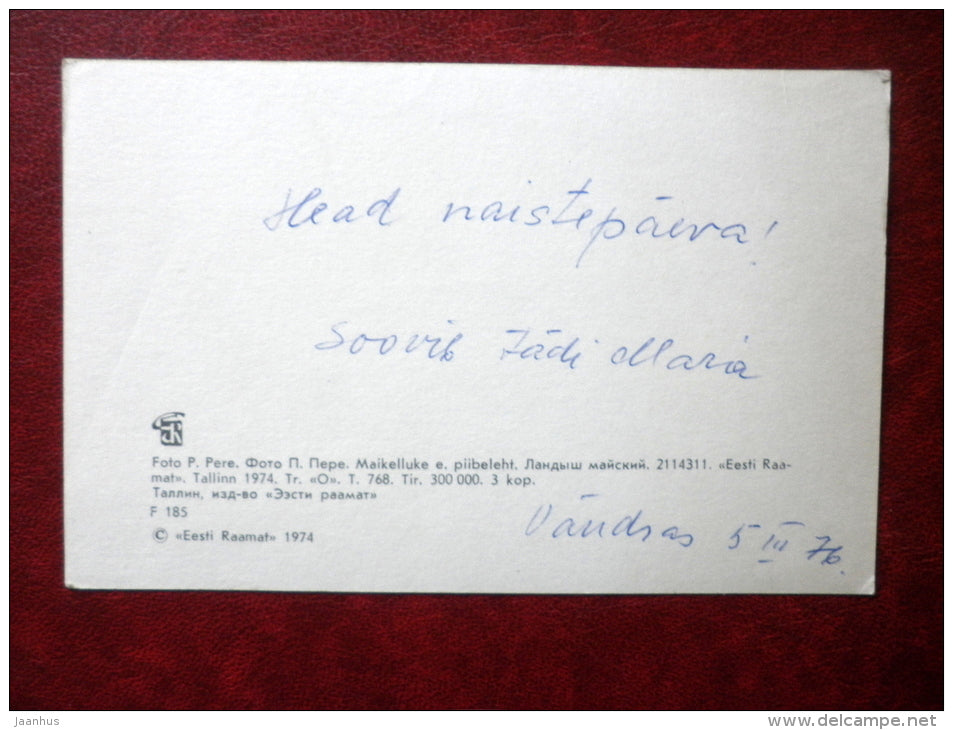 Head naistepäeva!
Soovib Tädi Maria
Foto P. Pere. Фото П. Пере. Maikelluke e. piibeleht. Ландыш майский. 2114311. «Eesti Raa-
mat». Tallinn 1974. Tr. «O». T. 768. Tir. 300 000. 3 kop.
Таллин, изд-во «Ээсти раамат»
F 185
© «Eesti Raamat» 1974
Vändras 5 III 76.
jaanhus
www.delcampe.net